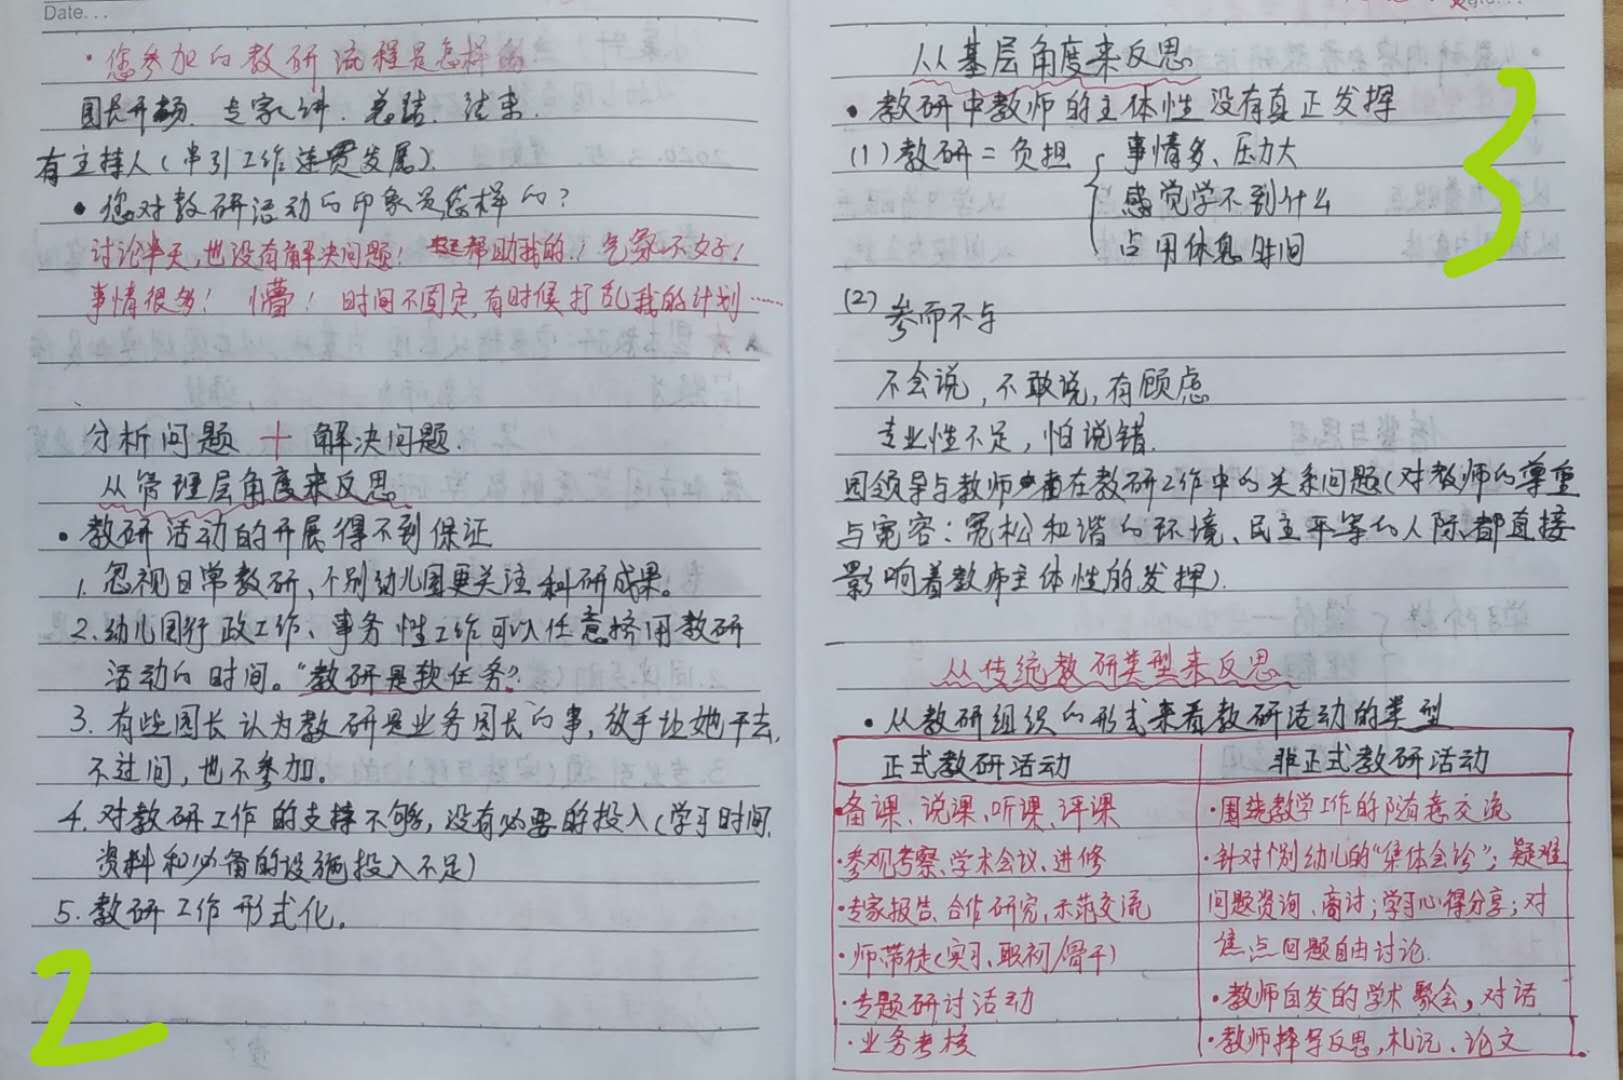 Date...
·您参加的教研流程是怎样的
园长开场、专家讲、总结、结束.
有主持人(串引工作连贯发展).
·您对教研活动的印象是怎样的?
讨论半天,也没有解决问题! 帮助我的! 气氛不好!
事情很多! 懵! 时间不固定,有时候打乱我的计划……
分析问题 + 解决问题.
从管理层角度来反思
·教研活动的开展得不到保证
1. 忽视日常教研,个别幼儿园更关注科研成果。
2. 幼儿园行政工作、事务性工作可以任意挤用教研
活动的时间。“教研是软任务”.
3. 有些园长认为教研是业务园长的事,放手让她干去,
不过问,也不参加。
4. 对教研工作的支持不够,没有必要的投入(学习时间,
资料和必备的设施投入不足)
5. 教研工作形式化。
2
从基层角度来反思
·教研中教师的主体性没有真正发挥
(1)教研=负担 { 事情多、压力大
感觉学不到什么
占用休息时间
(2) 参而不与
不会说,不敢说,有顾虑
专业性不足,怕说错.
园领导与教师在教研工作中的关系问题(对教师的尊重
与宽容:宽松和谐的环境、民主平等的人际都直接
影响着教师主体性的发挥).
从传统教研类型来反思
·从教研组织的形式来看教研活动的类型
正式教研活动 非正式教研活动
·备课、说课、听课、评课 ·围绕教学工作的随意交流
·参观考察、学术会议、进修 ·针对个别幼儿的“集体会诊”;疑难
·专家报告、合作研究,示范交流 问题资询、商讨;学习心得分享;对
·师带徒(实习、职初/骨干) 焦点问题自由讨论.
·专题研讨活动 ·教师自发的学术聚会,对话
·业务考核 ·教师撰写反思,札记、论文
3